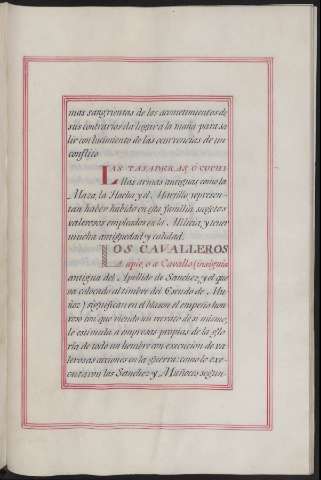 mas sangrientas de los acometimientos de
sus contrarios da lugar a la maña para sa
lir con lucimiento de las ocurrencias de un
conflito
LAS TAJADERAS, Ó CUCHI
llas armas antiguas como la
Maza, la Hacha y el Martillo represen-
tan haber habido en esta familia sugetos
valerosos empleados en la Milicia, y tener
mucha antiguedad y calidad.
LOS CAVALLEROS
A apie, o a Cavallo (insignia
antigua del Apellido de Sanchez, y el que
va colocado al timbre del Escudo de Mu-
ñoz) significan en el blason el empeño hon
roso con que viendo un retrato de si mismo,
le estimula a empresas propias de la glo
ria de todo un hombre con execucion de va-
lerosas acciones en la guerra: como lo exe-
cutaron los Sanchez y Muñoces segun-